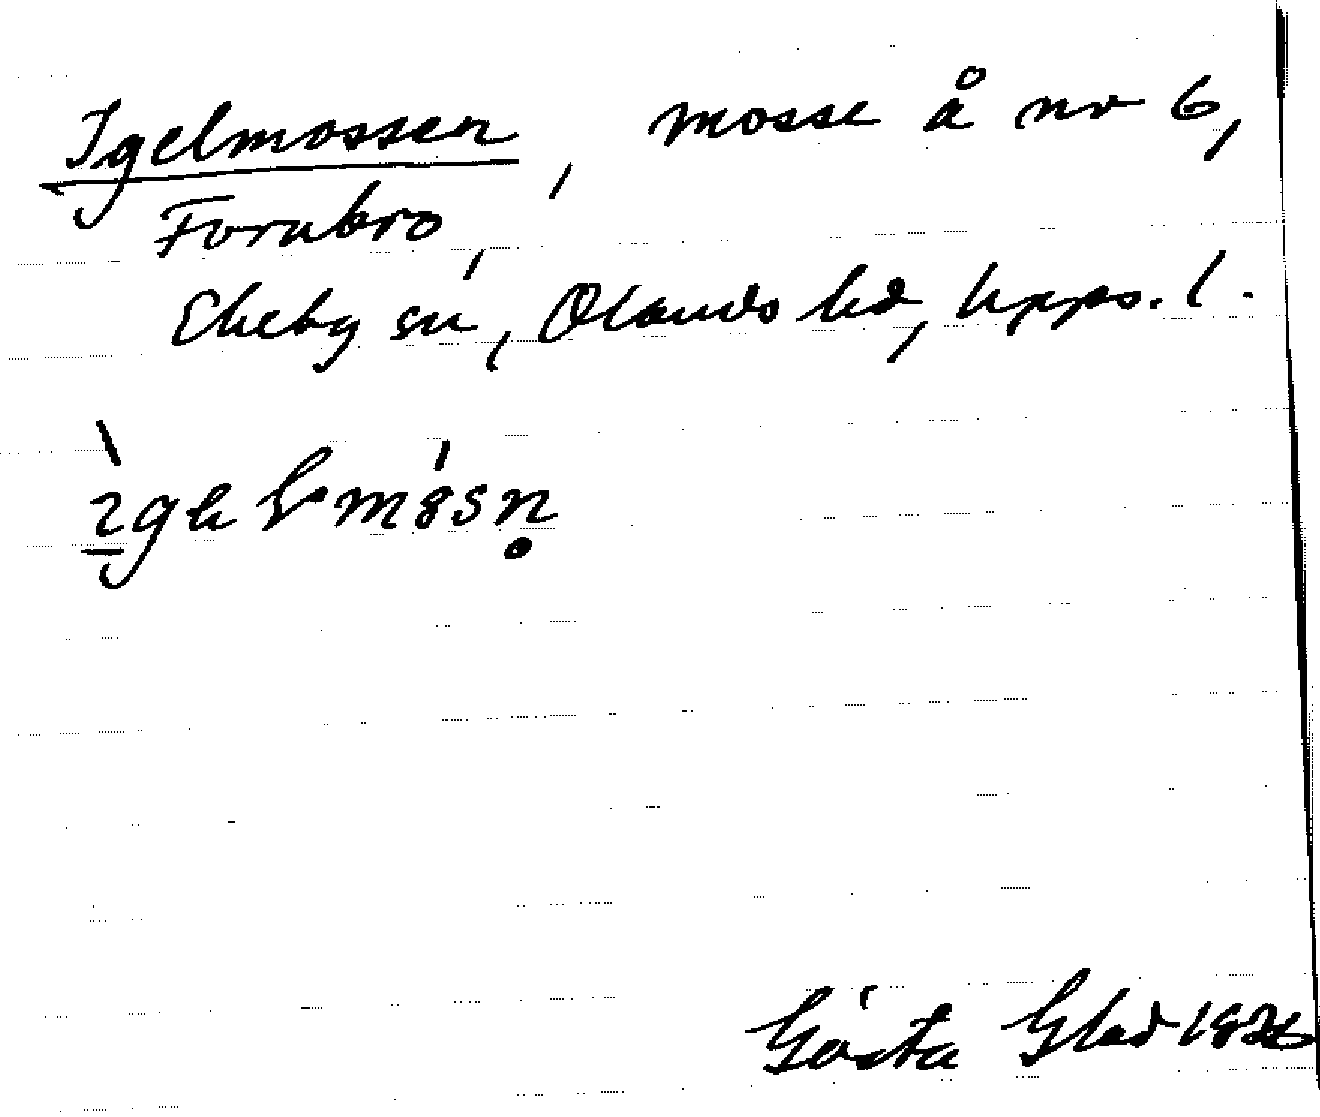 Igelmossen, mosse å nr 6,
Fornbro,
Ekeby sn, Olands hd, Upps. l.
Gösta Glad